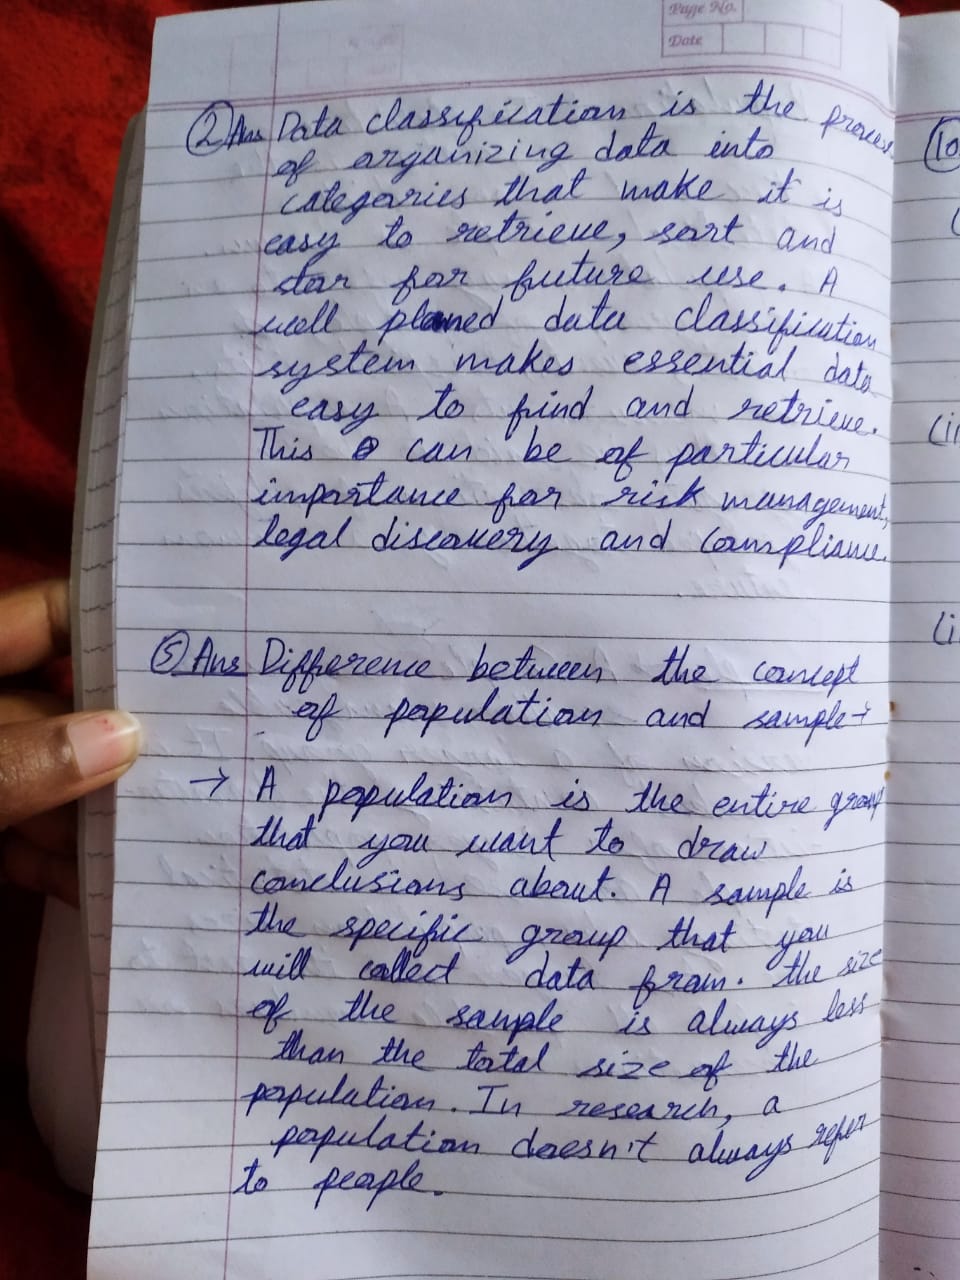 Page No.
Date
② Ans Data classification is the process
of organizing data into
categories that make it is
easy to retrieve, sort and
stor for future use. A
well planed data classification
system makes essential data
easy to find and retrieve.
This can be of particular
importance for risk management,
legal discovery and compliance.
⑤ Ans Difference between the concept
of population and sample →
→ A population is the entire group
that you want to draw
conclusions about. A sample is
the specific group that you
will collect data from. the size
of the sample is always less
than the total size of the
population. In research, a
population doesn't always refer
to people.
10
(ii
(i